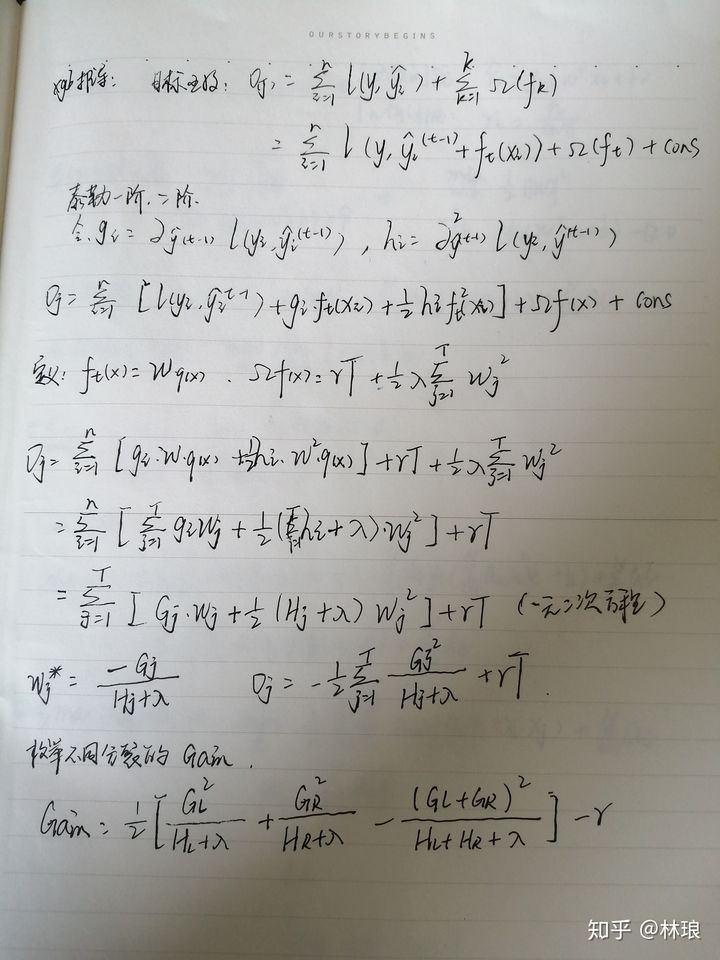 OURSTORYBEGINS
xgb推导: 目标函数: Oj = Σ_{i=1}^{n} l(y, ŷi) + Σ_{k=1}^{k} Ω(fk)
= Σ_{i=1}^{n} l(y, ŷi^(t-1) + ft(xi)) + Ω(ft) + cons
泰勒一阶.二阶.
令. gi = ∂ŷ(t-1) l(yi, ŷi^(t-1)), hi = ∂²ŷ(t-1) l(yi, ŷ^(t-1))
Oj = Σ_{i=1}^{n} [l(yi, ŷi^t-1) + gi ft(xi) + ½ hi ft²(xi)] + Ωf(x) + cons
定义: ft(x) = Wq(x) . Ωf(x) = rT + ½ λ Σ_{j=1}^{T} Wj²
Oj = Σ_{i=1}^{n} [gi·W·q(x) + ½hi·W²·q(x)] + rT + ½ λ Σ_{j=1}^{T} Wj²
= Σ_{i=1}^{n} [Σ_{j=1}^{T} gi Wj + ½ (hi + λ)·Wj²] + rT
= Σ_{j=1}^{T} [Gj·Wj + ½ (Hj + λ) Wj²] + rT (一元二次方程)
Wj* = -Gj / (Hj + λ) Oj = -½ Σ_{j=1}^{T} Gj² / (Hj + λ) + rT.
枚举不同分裂的 Gain.
Gain = ½ [GL² / (HL + λ) + GR² / (HR + λ) - (GL + GR)² / (HL + HR + λ)] - r
知乎 @林琅